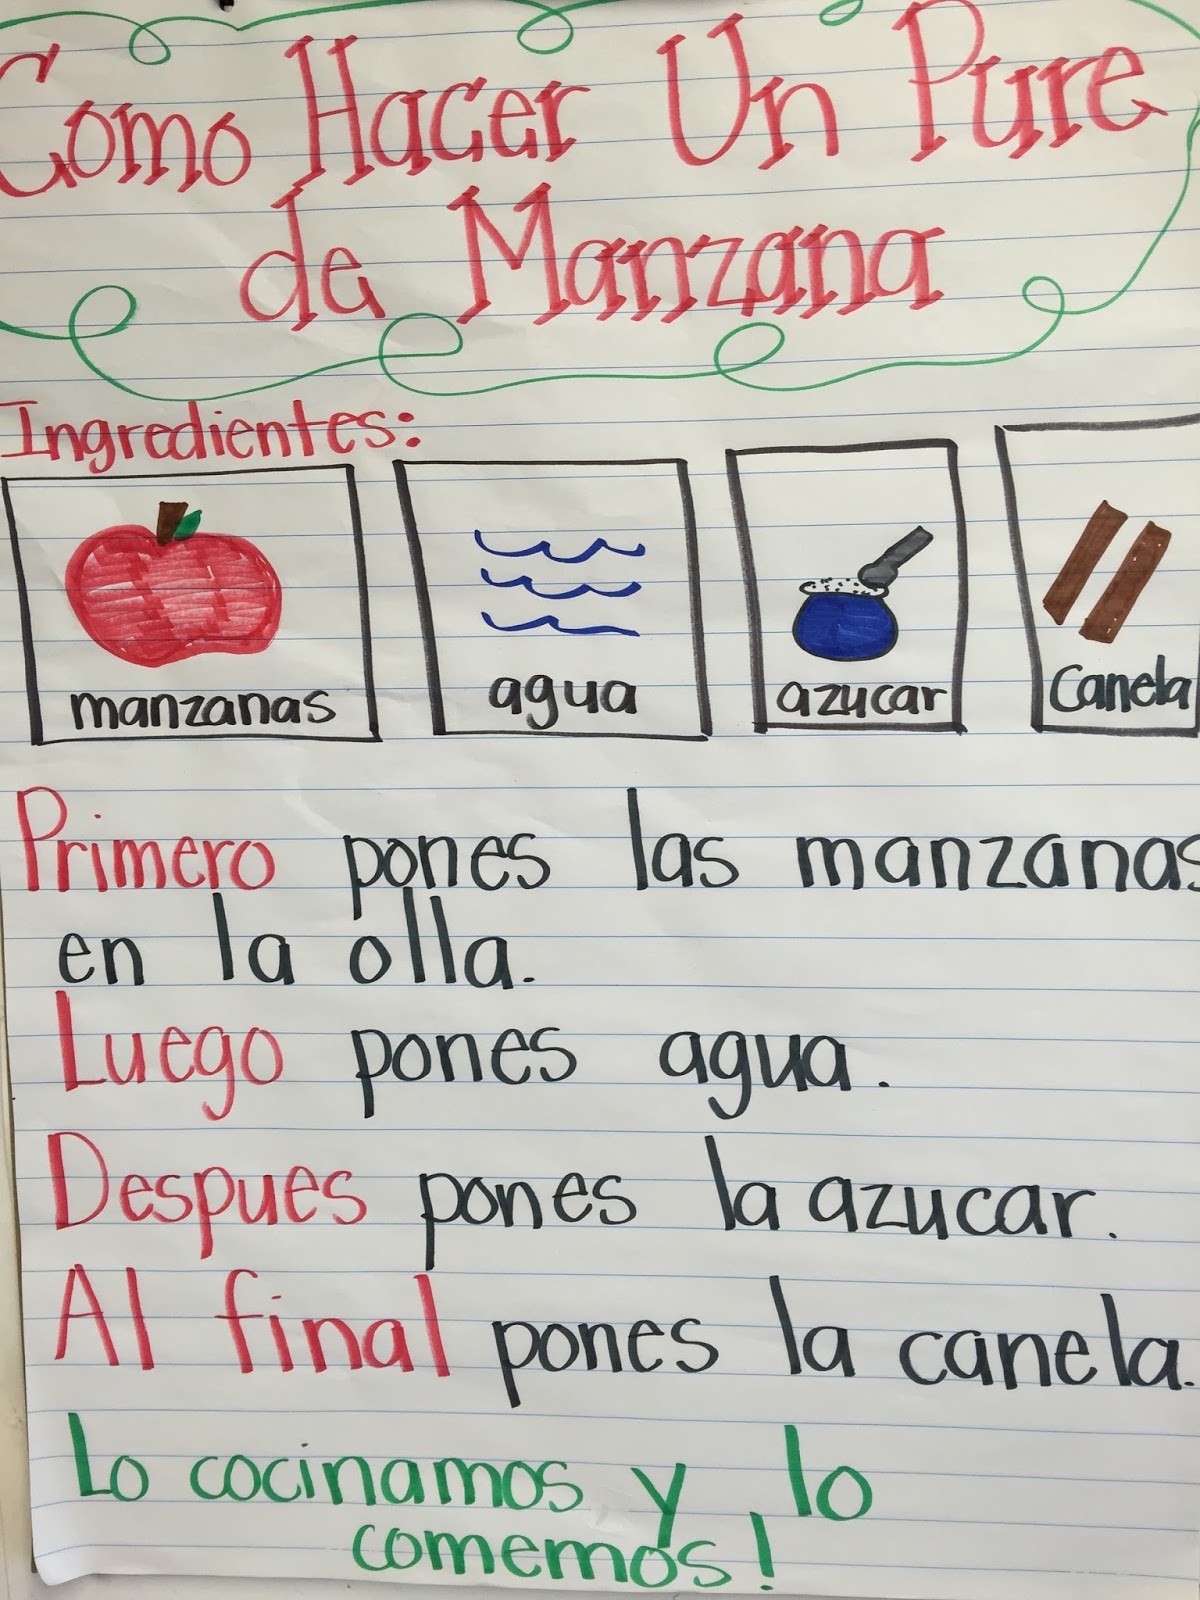 Como Hacer Un Pure
de Manzana
Ingredientes:
manzanas agua azucar canela
Primero pones las manzanas
en la olla.
Luego pones agua.
Despues pones la azucar.
Al final pones la canela.
Lo cocinamos y lo
comemos!